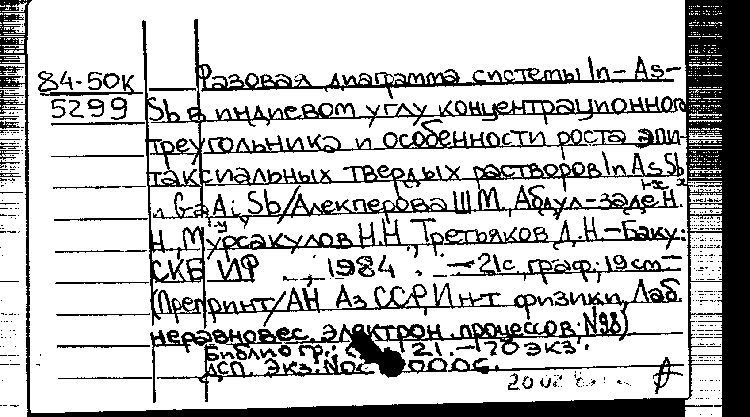 84-50к
5299
Фазовая диаграмма системы In-As-
Sb в индиевом углу концентрационного
треугольника и особенности роста эпи-
таксиальных твердых растворов InAsSb
1-x x
и GaAlSb/Алекперова Ш.М., Абдул-заде Н.
Н., Мурсакулов Н.Н., Третьяков Д.Н.-Баку:
СКБ ИФ, 1984. -21с, граф; 19см-
(Препринт/АН АзССР, Ин-т физики, Лаб.
неравновес. электрон. процессов; N98)
Библиогр.: с. 21. -70 экз.
ДСП. Экз: N 0006.
20 02